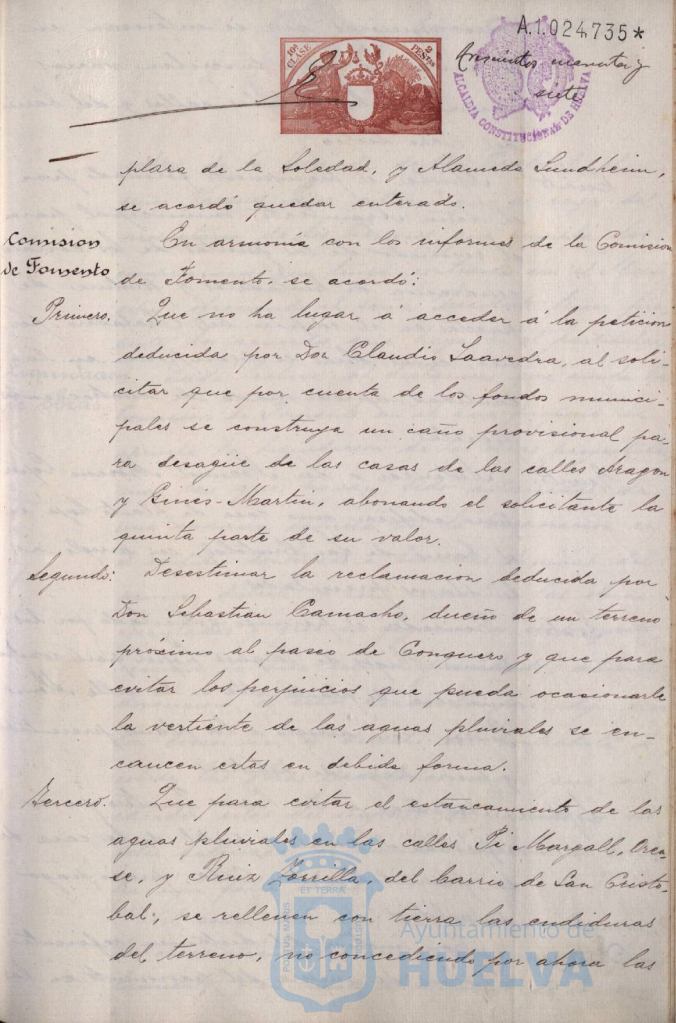 A.1.024.735*
10ª CLASE
2 PESTAS
siete
ALCALDIA CONSTITUCIONAL DE HUELVA
plaza de la Soledad, y Alameda Sundheim,
se acordó quedar enterado.
Comision
de Fomento
En armonía con los informes de la Comision
de Fomento, se acordó:
Primero. Que no ha lugar á acceder á la peticion
deducida por Don Claudio Saavedra, al soli-
citar que por cuenta de los fondos munici-
pales se construya un caño provisional pa-
ra desagüe de las casas de las calles Aragon
y Gines-Martin, abonando el solicitante la
quinta parte de su valor.
Segundo: Desestimar la reclamacion deducida por
Don Sebastian Camacho, dueño de un terreno
próximo al paseo de Conquero y que para
evitar los perjuicios que pueda ocasionarle
la vertiente de las aguas pluviales se en-
caucen estas en debida forma.
Tercero. Que para evitar el estancamiento de las
aguas pluviales en las calles Pi Margall, Oren-
se, y Ruiz Zorrilla, del barrio de San Cristo-
bal, se rellenen con tierra las endiduras
del terreno, no concediendo por ahora las
PORTUS MARIS ET TERRAE CUSTODIA
Ayuntamiento de
HUELVA